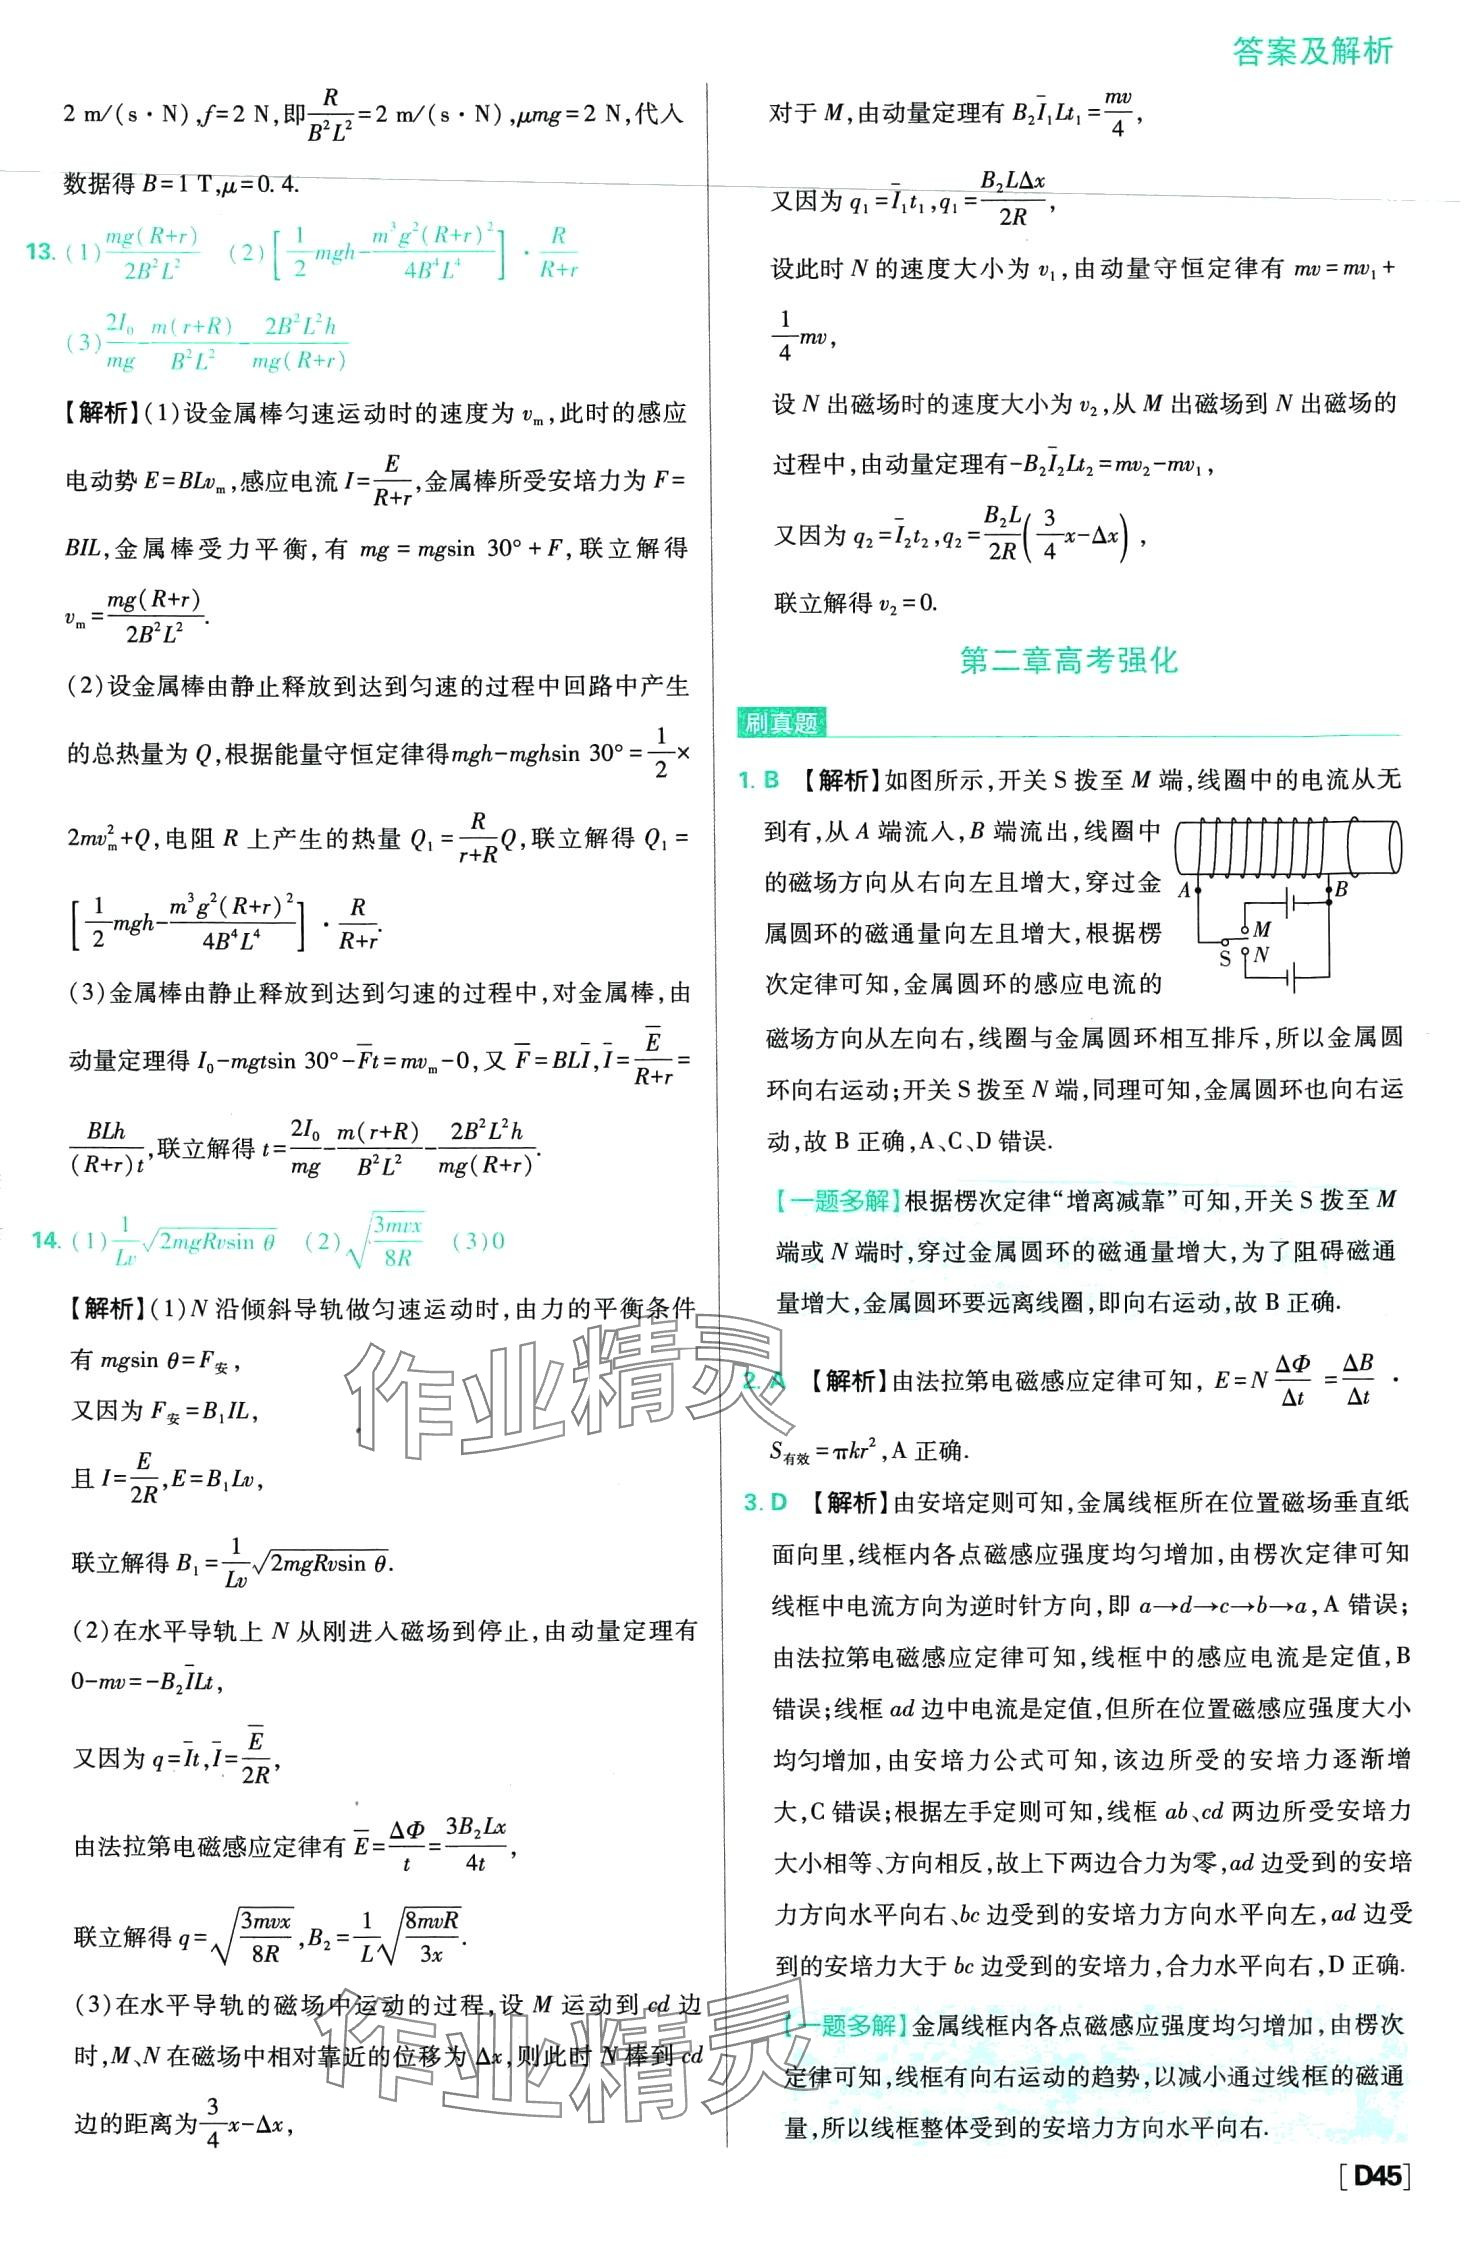 答案及解析
2 m/(s·N),f=2 N,即R/(B²L²)=2 m/(s·N),μmg=2 N,代入
数据得 B=1 T,μ=0.4.
13. (1) mg(R+r)/(2B²L²) (2)[1/2 mgh-m³g²(R+r)²/(4B⁴L⁴)]·R/(R+r)
(3) 2I₀/mg-m(r+R)/(B²L²)-2B²L²h/(mg(R+r))
【解析】(1)设金属棒匀速运动时的速度为 vₘ,此时的感应
电动势 E=BLvₘ,感应电流 I=E/(R+r),金属棒所受安培力为 F=
BIL,金属棒受力平衡,有 mg=mgsin 30°+F,联立解得
vₘ=mg(R+r)/(2B²L²).
(2)设金属棒由静止释放到达到匀速的过程中回路中产生
的总热量为 Q,根据能量守恒定律得mgh-mghsin 30°=1/2×
2mvₘ²+Q,电阻 R 上产生的热量 Q₁=R/(r+R)Q,联立解得 Q₁=
[1/2 mgh-m³g²(R+r)²/(4B⁴L⁴)]·R/(R+r).
(3)金属棒由静止释放到达到匀速的过程中,对金属棒,由
动量定理得 I₀-mgtsin 30°-F̄t=mvₘ-0,又 F̄=BLĪ,Ī=Ē/(R+r)=
BLh/((R+r)t),联立解得 t=2I₀/mg-m(r+R)/(B²L²)-2B²L²h/(mg(R+r)).
14. (1) 1/(Lv)√(2mgRvsin θ) (2)√(3mvx/8R) (3)0
【解析】(1)N 沿倾斜导轨做匀速运动时,由力的平衡条件
有 mgsin θ=F安,
又因为 F安=B₁IL,
且 I=E/2R,E=B₁Lv,
联立解得 B₁=1/(Lv)√(2mgRvsin θ).
(2)在水平导轨上 N 从刚进入磁场到停止,由动量定理有
0-mv=-B₂ĪLt,
又因为 q=Īt,Ī=Ē/2R,
由法拉第电磁感应定律有 Ē=ΔΦ/t=3B₂Lx/4t,
联立解得 q=√(3mvx/8R),B₂=1/L√(8mvR/3x).
(3)在水平导轨的磁场中运动的过程,设 M 运动到 cd 边
时,M、N 在磁场中相对靠近的位移为 Δx,则此时 N 棒到 cd
边的距离为3/4 x-Δx,
对于 M,由动量定理有 B₂Ī₁Lt₁=mv/4,
又因为 q₁=Ī₁t₁,q₁=B₂LΔx/2R,
设此时 N 的速度大小为 v₁,由动量守恒定律有 mv=mv₁+
1/4 mv,
设 N 出磁场时的速度大小为 v₂,从 M 出磁场到 N 出磁场的
过程中,由动量定理有-B₂Ī₂Lt₂=mv₂-mv₁,
又因为 q₂=Ī₂t₂,q₂=B₂L/2R(3/4 x-Δx),
联立解得 v₂=0.
第二章高考强化
刷真题
1. B 【解析】如图所示,开关 S 拨至 M 端,线圈中的电流从无
到有,从 A 端流入,B 端流出,线圈中
的磁场方向从右向左且增大,穿过金
属圆环的磁通量向左且增大,根据楞
次定律可知,金属圆环的感应电流的
A
B
M
S
N
磁场方向从左向右,线圈与金属圆环相互排斥,所以金属圆
环向右运动;开关 S 拨至 N 端,同理可知,金属圆环也向右运
动,故 B 正确,A、C、D 错误.
【一题多解】根据楞次定律“增离减靠”可知,开关 S 拨至 M
端或 N 端时,穿过金属圆环的磁通量增大,为了阻碍磁通
量增大,金属圆环要远离线圈,即向右运动,故 B 正确.
2. A 【解析】由法拉第电磁感应定律可知, E=N ΔΦ/Δt=ΔB/Δt·
S有效=πkr²,A 正确.
3. D 【解析】由安培定则可知,金属线框所在位置磁场垂直纸
面向里,线框内各点磁感应强度均匀增加,由楞次定律可知
线框中电流方向为逆时针方向,即 a→d→c→b→a,A 错误;
由法拉第电磁感应定律可知,线框中的感应电流是定值,B
错误;线框 ad 边中电流是定值,但所在位置磁感应强度大小
均匀增加,由安培力公式可知,该边所受的安培力逐渐增
大,C 错误;根据左手定则可知,线框 ab、cd 两边所受安培力
大小相等、方向相反,故上下两边合力为零,ad 边受到的安培
力方向水平向右、bc 边受到的安培力方向水平向左,ad 边受
到的安培力大于 bc 边受到的安培力,合力水平向右,D 正确.
【一题多解】金属线框内各点磁感应强度均匀增加,由楞次
定律可知,线框有向右运动的趋势,以减小通过线框的磁通
量,所以线框整体受到的安培力方向水平向右.
作业精灵
作业精灵
[D45]